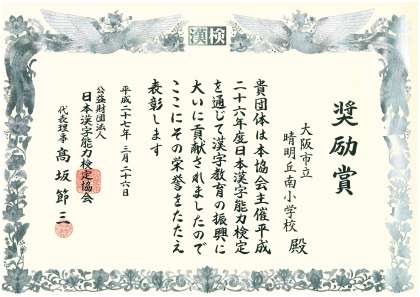 漢検
奨励賞
大阪市立
晴明丘南小学校 殿
貴団体は本協会主催平成
二十六年度日本漢字能力検定
を通じて漢字教育の振興に
大いに貢献されましたので
ここにその栄誉をたたえ
表彰します
平成二十七年 三月二十六日
公益財団法人
日本漢字能力検定協会
代表理事 髙坂節三